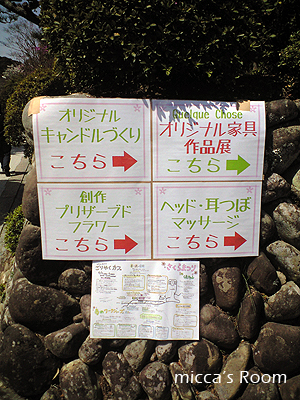 オリジナル
キャンドルづくり
こちら
Quelque Chose
オリジナル家具
作品展
こちら
創作
プリザーブド
フラワー
こちら
ヘッド・耳つぼ
マッサージ
こちら
micca's Room